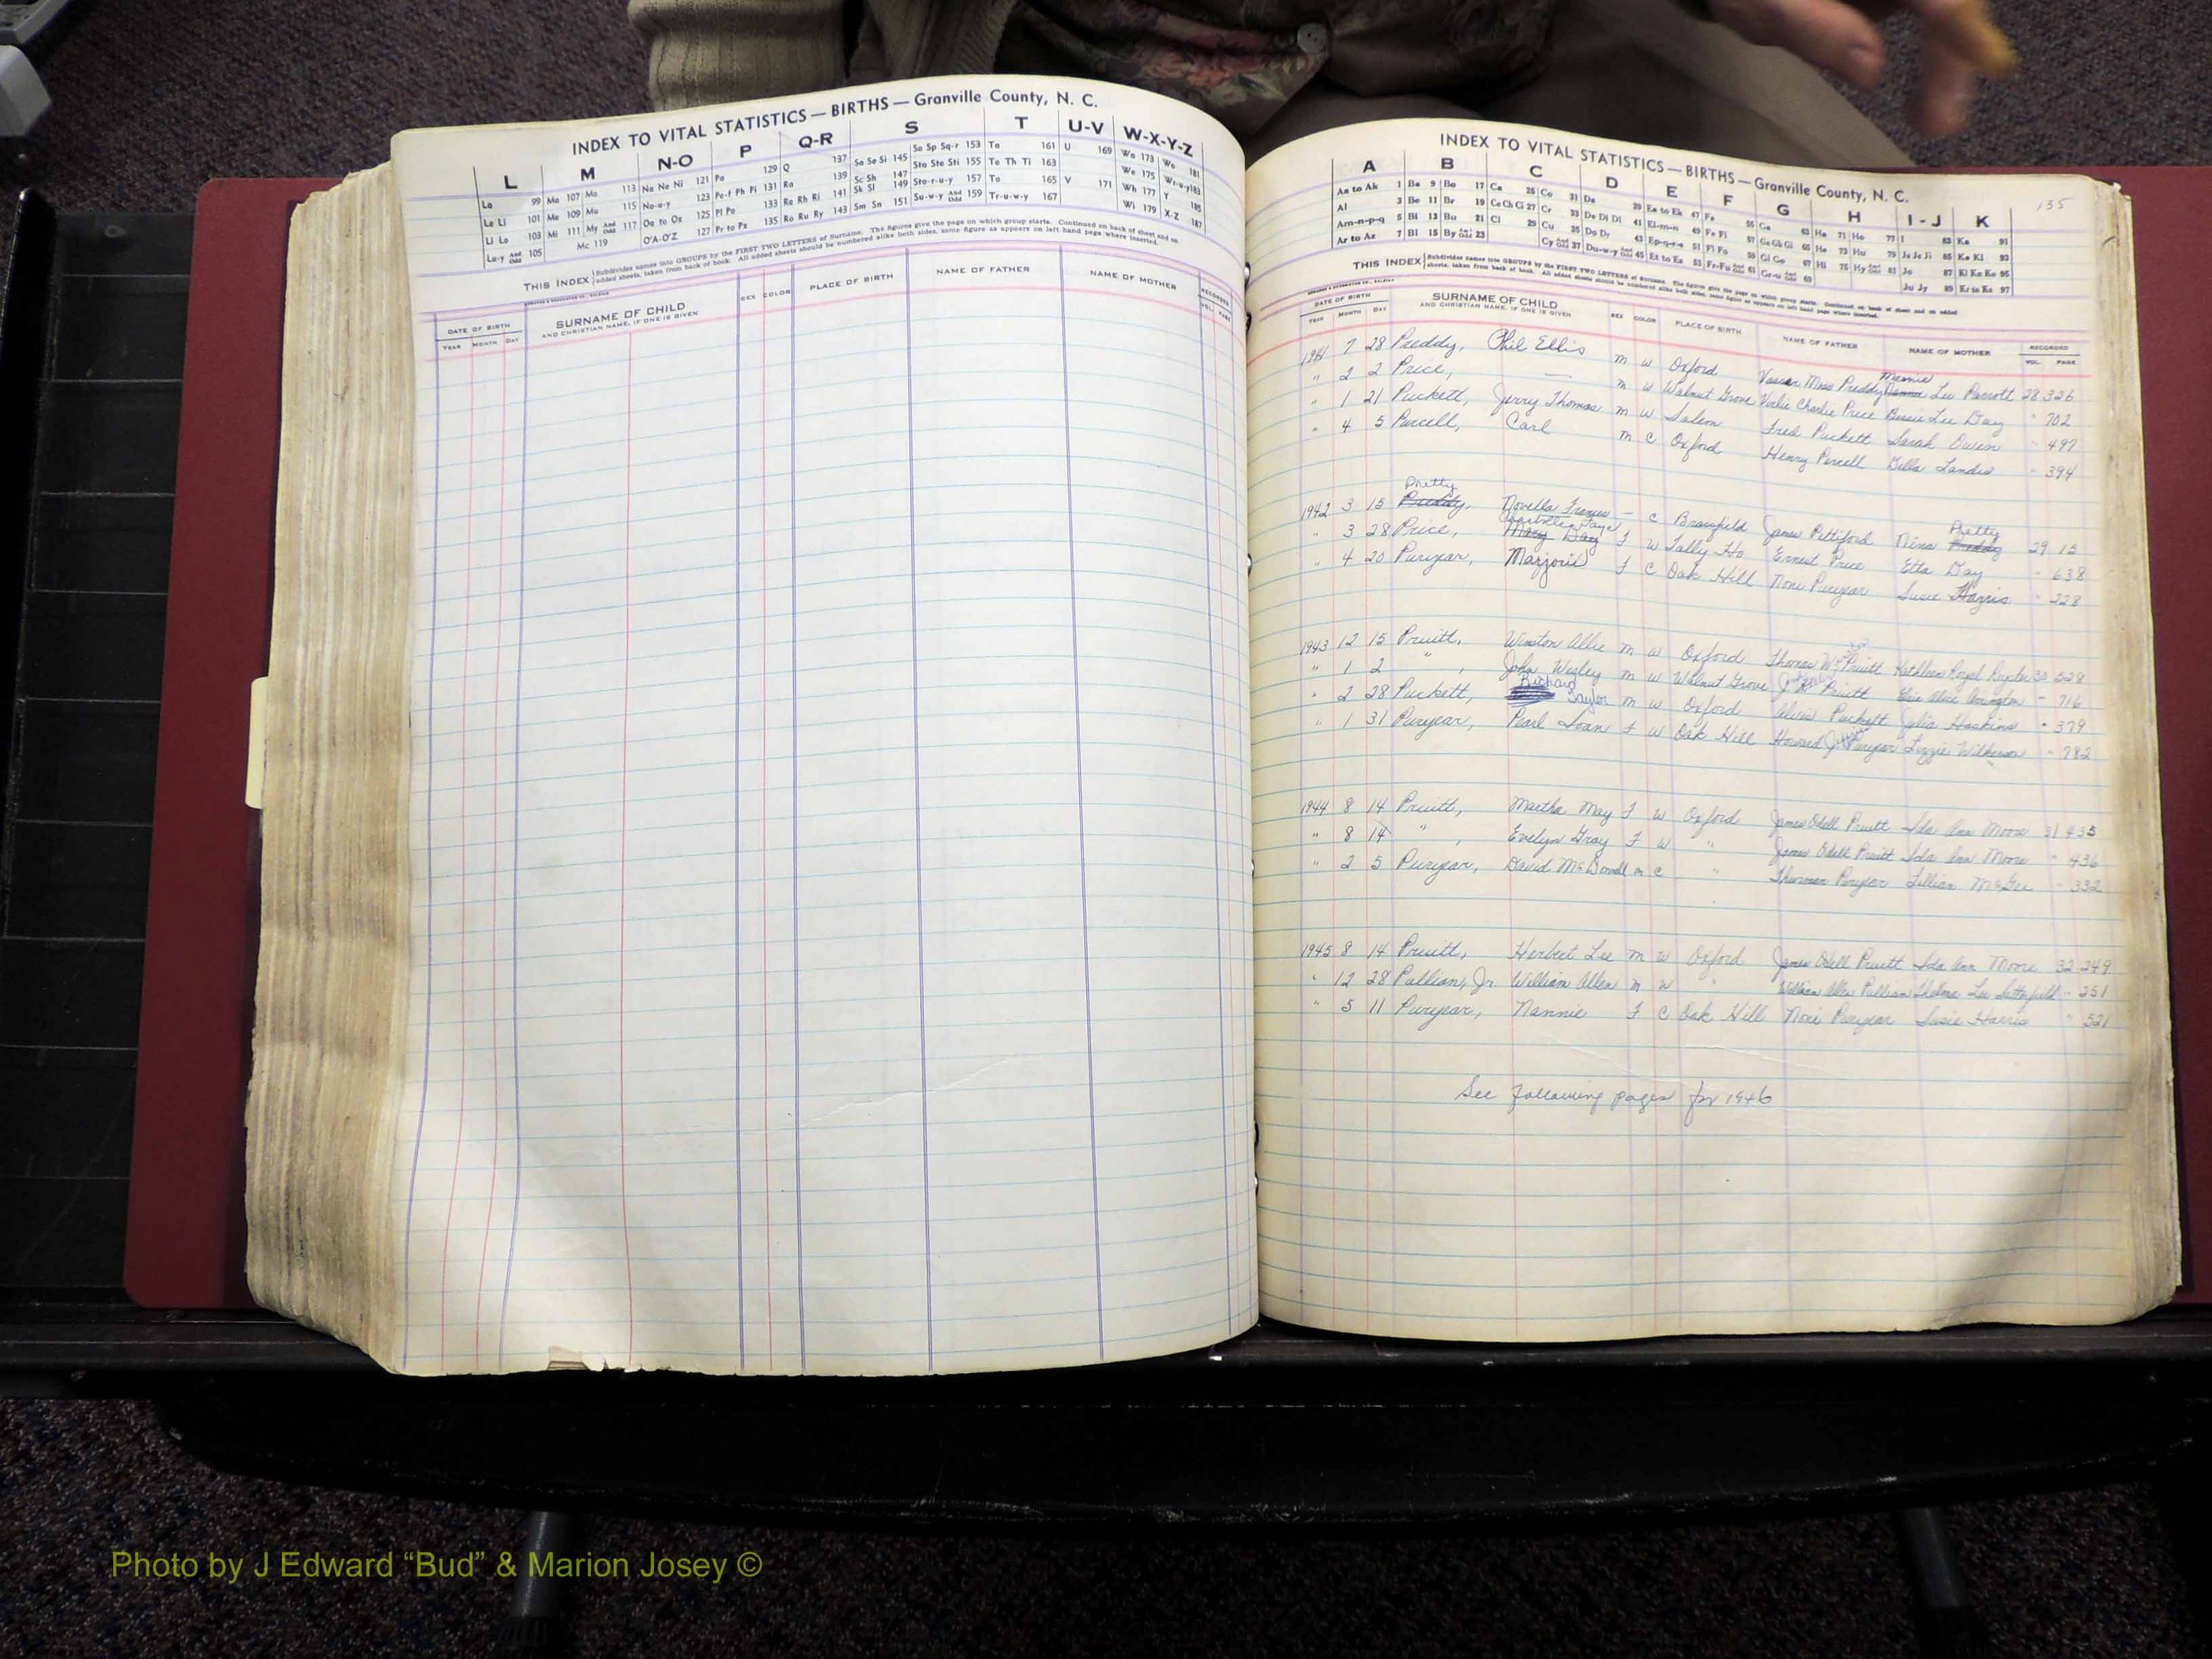 INDEX TO VITAL STATISTICS — BIRTHS — Granville County, N. C.
L M N-O P Q-R S T U-V W-X-Y-Z
La 99 Ma 107 Mo 113 Na Ne Ni 121 Pa 129 Q 137 Sa Se Si 145 So Sp Sq-r 153 Ta 161 U 169 Wa 173 Wo 181
Le Li 101 Me 109 Mu 115 No-u-y 123 Pe-f Ph Pi 131 Ra 139 Sc Sh 147 Sta Ste Sti 155 Te Th Ti 163 We 175 Wr-u-y 183
Ll Lo 103 Mi 111 My And Odd 117 Oa to Oz 125 Pl Po 133 Re Rh Ri 141 Sk Sl 149 Sto-r-u-y 157 To 165 V 171 Wh 177 Y 185
Lu-y And Odd 105 Mc 119 O'A-O'Z 127 Pr to Pz 135 Ro Ru Ry 143 Sm Sn 151 Su-w-y And Odd 159 Tr-u-w-y 167 Wi 179 X-Z 187
THIS INDEX Subdivides names into GROUPS by the FIRST TWO LETTERS of Surname. The figures give the page on which group starts. Continued on back of sheet and on
added sheets, taken from back of book. All added sheets should be numbered alike both sides, same figure as appears on left hand page where inserted.
DATE OF BIRTH SURNAME OF CHILD SEX COLOR PLACE OF BIRTH NAME OF FATHER NAME OF MOTHER RECORDED
YEAR MONTH DAY AND CHRISTIAN NAME, IF ONE IS GIVEN VOL. PAGE
135
INDEX TO VITAL STATISTICS — BIRTHS — Granville County, N. C.
A B C D E F G H I-J K
Aa to Ak 1 Ba 9 Bo 17 Ca 25 Co 31 Da 39 Ea to Ek 47 Fa 55 Ga 63 Ha 71 Ho 77 I 83 Ka 91
Al 3 Be 11 Br 19 Ce Ch Ci 27 Cr 33 De Di Dl 41 El-m-n 49 Fe Fi 57 Ge Gh Gi 65 He 73 Hu 79 Ja Je Ji 85 Ke Kl 93
Am-n-p-q 5 Bi 13 Bu 21 Cl 29 Cu 35 Do Dr 43 Ep-q-r-s 51 Fl Fo 59 Gl Go 67 Hi 75 Hy And Odd 81 Jo 87 Kl Kn Ko 95
Ar to Az 7 Bl 15 By And Odd 23 Cy And Odd 37 Du-w-y And Odd 45 Et to Ez 53 Fr-Fu And Odd 61 Gr-u And Odd 69 Ju Jy 89 Kr to Kz 97
THIS INDEX Subdivides names into GROUPS by the FIRST TWO LETTERS of Surname. The figures give the page on which group starts. Continued on back of sheet and on added
sheets, taken from back of book. All added sheets should be numbered alike both sides, same figure as appears on left hand page where inserted.
DATE OF BIRTH SURNAME OF CHILD SEX COLOR PLACE OF BIRTH NAME OF FATHER NAME OF MOTHER RECORDED
YEAR MONTH DAY AND CHRISTIAN NAME, IF ONE IS GIVEN VOL. PAGE
1941 7 28 Preddy, Phil Ellis m w Oxford Vassar Moss Preddy Mamie Lee Parrott 28 326
" 2 2 Price, — m w Walnut Grove Charlie Price Bessie Lee Day " 702
" 1 21 Puckett, Jerry Thomas m w Salem Fred Puckett Sarah Owen " 497
" 4 5 Purcell, Carl m c Oxford Henry Purcell Landis " 394
Pretty
1942 3 15 Preddy, Novella Frances — c Brassfield James Pettiford Nina Preddy Pretty 29 15
" 3 28 Price, Mary Day Faye F w Tally Ho Ernest Price Etta Day " 638
" 4 20 Puryear, Marjorie F c Oak Hill Noni Puryear Susie Harris " 228
1943 12 15 Pruitt, Winston Allie m w Oxford Thomas Pruitt Kathleen Royal Royster 30 528
" 1 2 " , John Wesley m w Walnut Grove Pruitt Elsie Alice Arrington " 716
" 2 28 Puckett, Richard Taylor m w Oxford Alvis Puckett Julia Haskins " 379
" 1 31 Puryear, Pearl Joan F w Oak Hill Howard J. Puryear Lizzie Wilkerson " 782
1944 8 14 Pruitt, Martha May F w Oxford James Odell Pruitt Ida Ann Moore 31 435
" 8 14 " , Evelyn Gray F w " James Odell Pruitt Ida Ann Moore " 436
" 2 5 Puryear, David McDowell m c " Thurman Puryear Lillian McGee " 332
1945 8 14 Pruitt, Herbert Lee m w Oxford James Odell Pruitt Ida Ann Moore 32 249
" 12 28 Pullian, Jr. William Allen m w " William Allen Pullian Thelma Lee Satterfield " 251
" 5 11 Puryear, Nannie F c Oak Hill Noni Puryear Susie Harris " 521
See following pages for 1946
Photo by J Edward “Bud” & Marion Josey ©